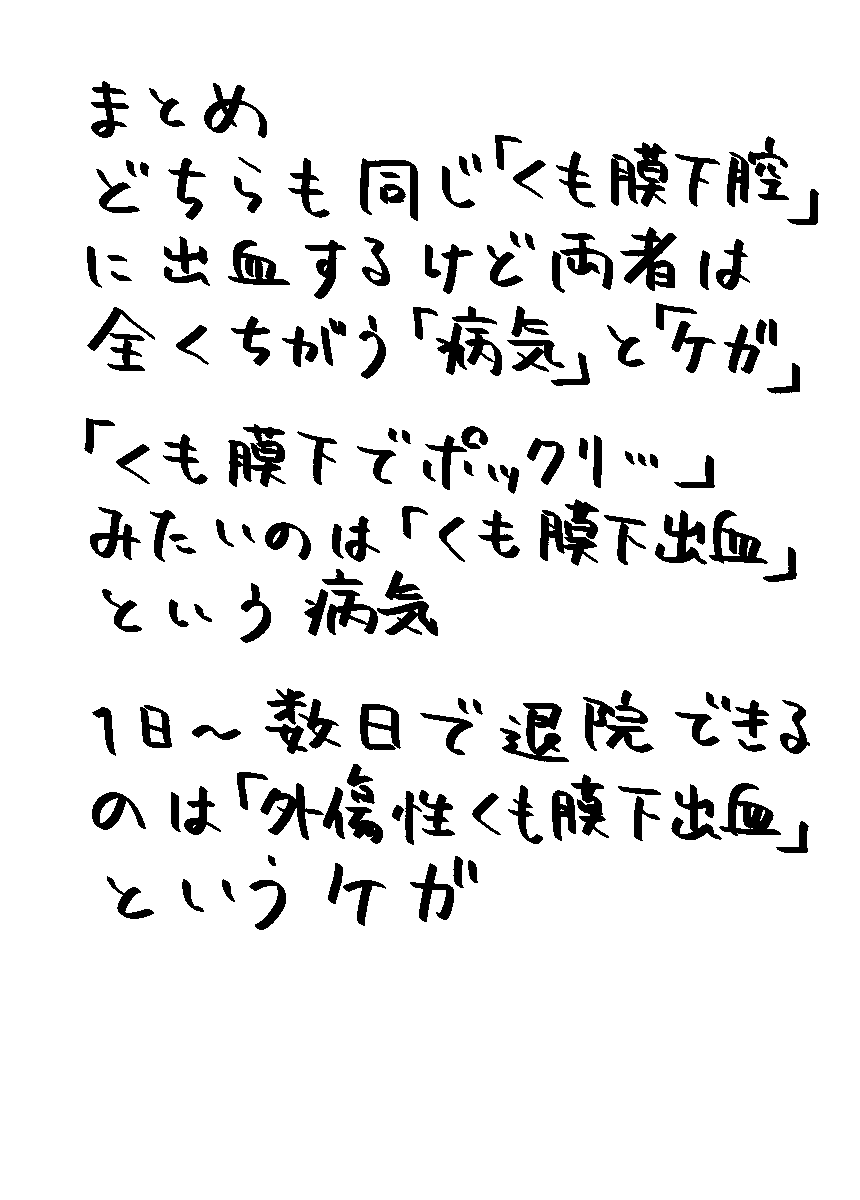 まとめ
どちらも同じ「くも膜下腔」
に出血するけど両者は
全くちがう「病気」と「ケガ」
「くも膜下でポックリ…」
みたいのは「くも膜下出血」
という病気
1日〜数日で退院できる
のは「外傷性くも膜下出血」
というケガ